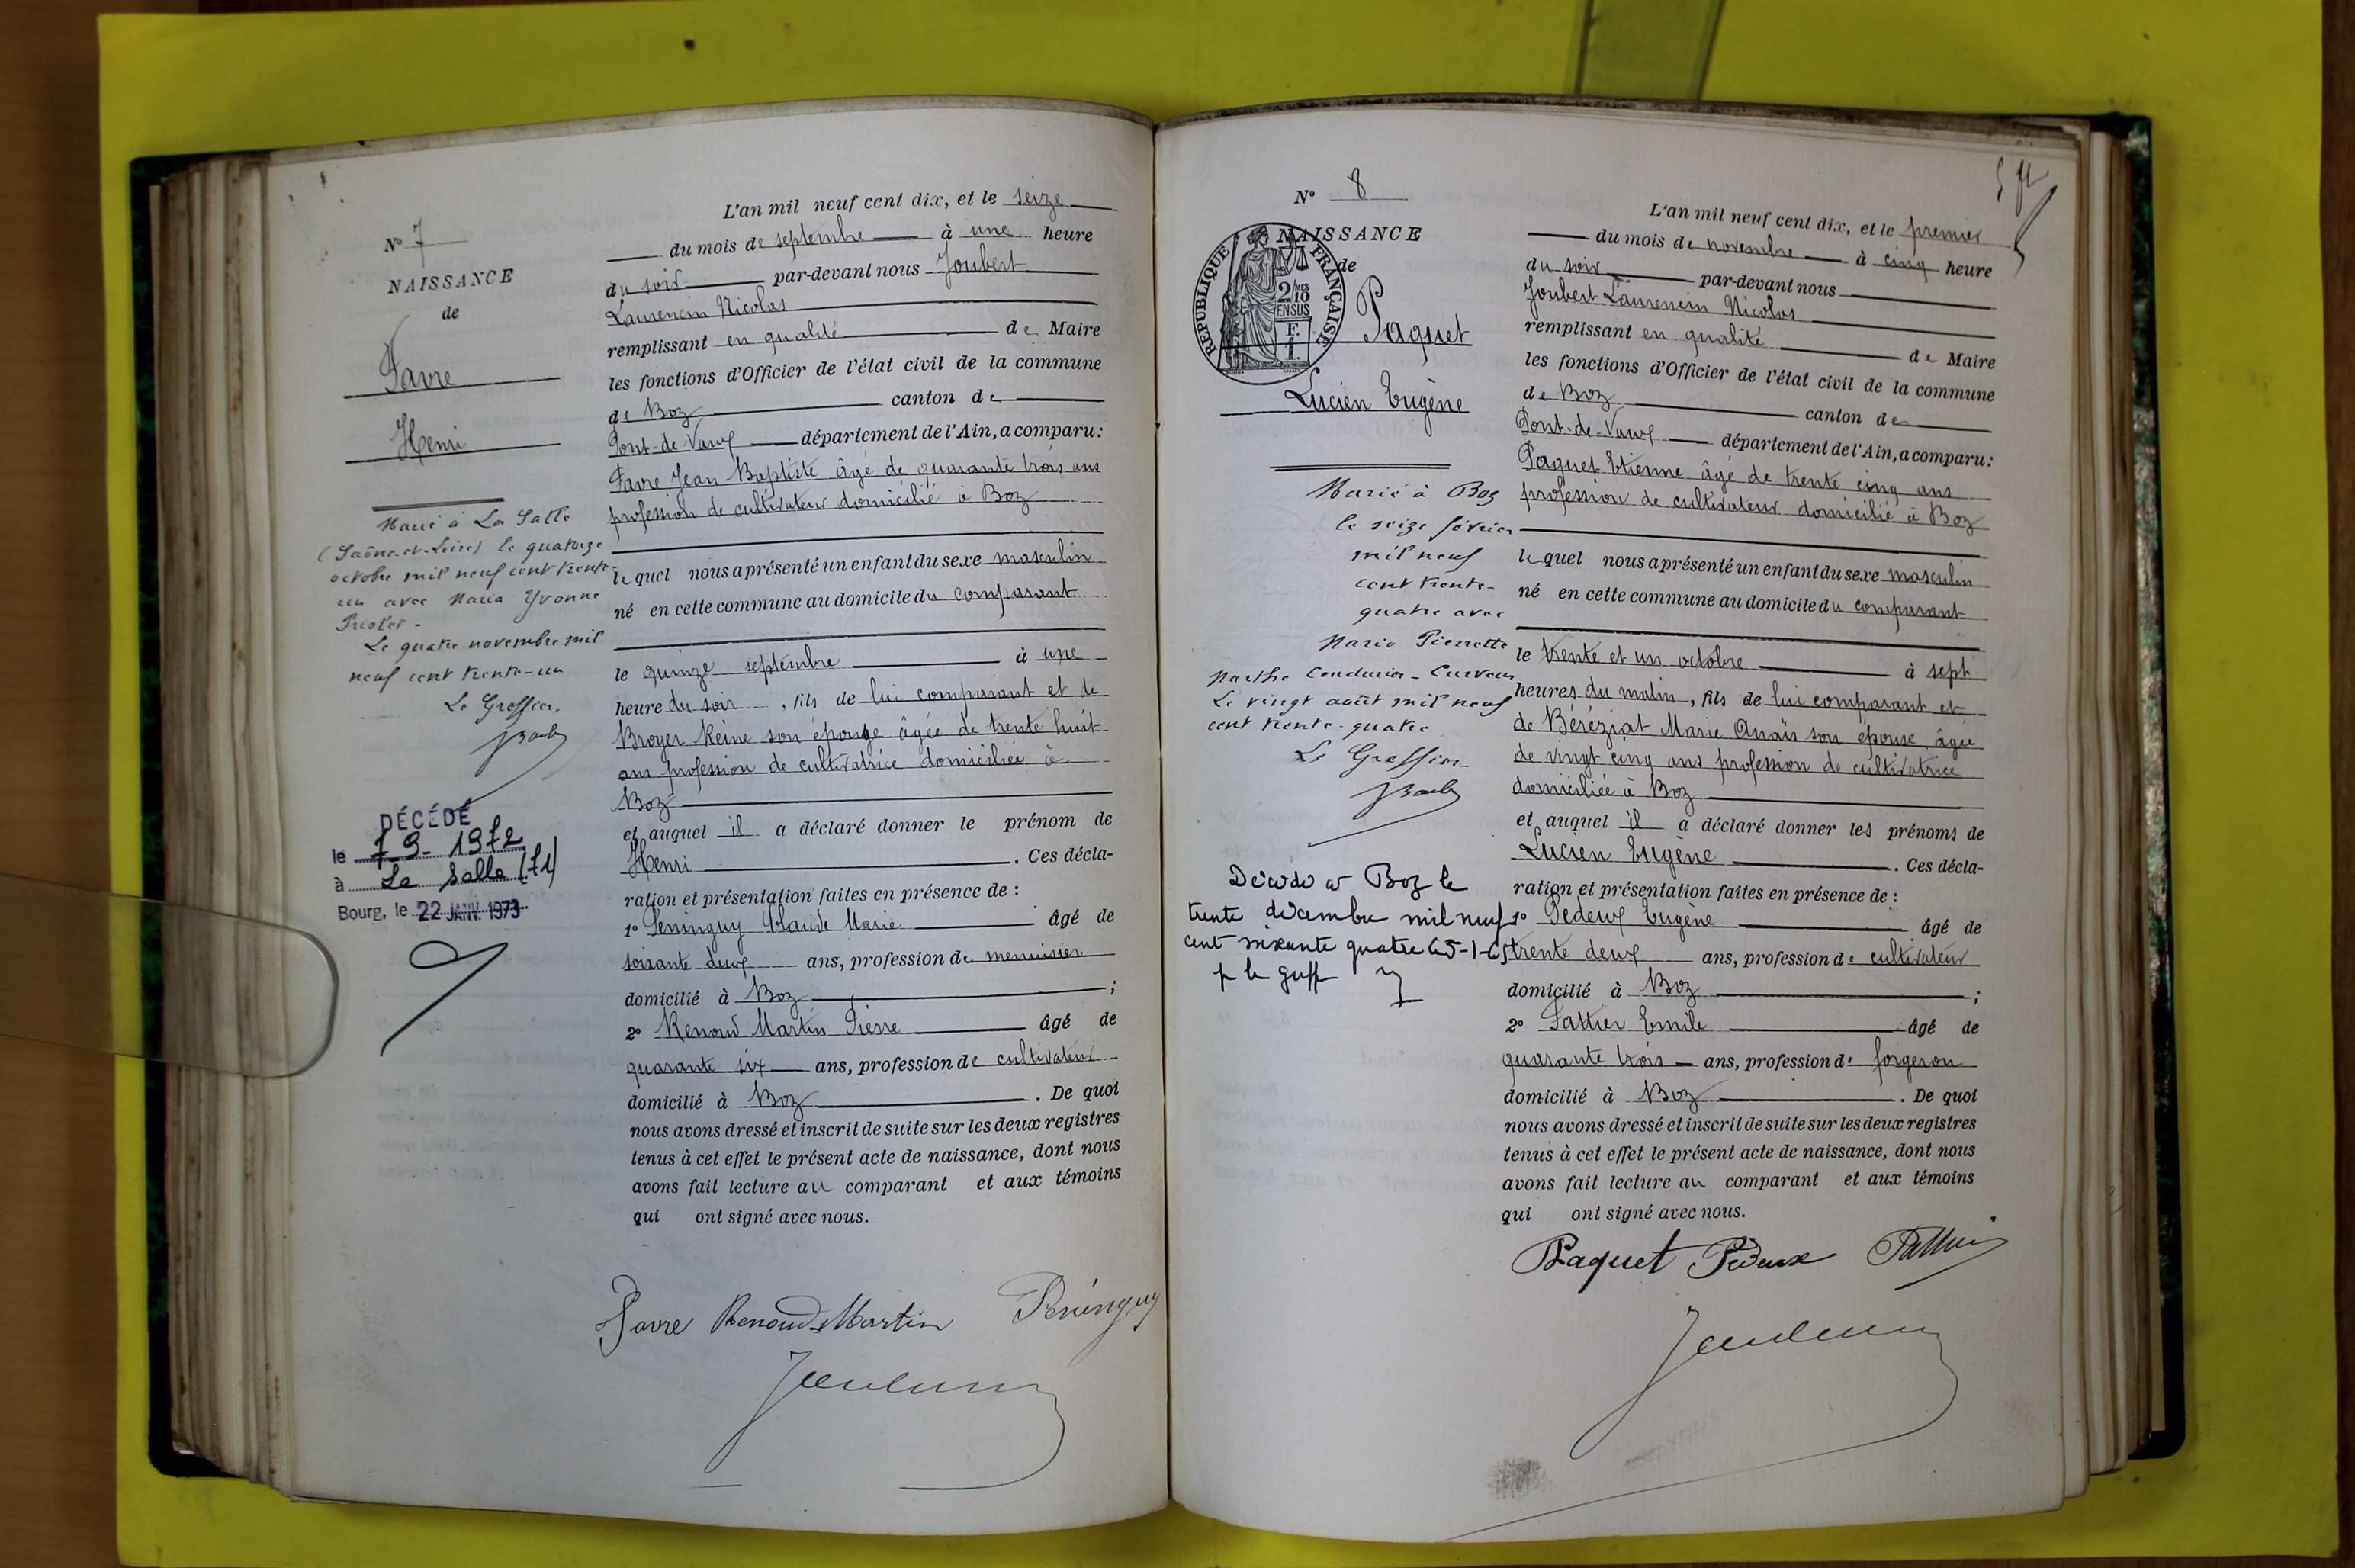 N° 7
NAISSANCE
de
Favre
Henri
Marié à La Salle
(Saône-et-Loire) le quatorze
octobre mil neuf cent trente-
un avec Maria Yvonne
Le quatre novembre mil
neuf cent trente-un
Le Greffier,
DÉCÉDÉ
le 7-9-1972
à La Salle (71)
Bourg, le 22 JANV. 1973
L'an mil neuf cent dix, et le seize
du mois de septembre à une heure
du soir par-devant nous Joubert
Laurencin Nicolas
remplissant en qualité de Maire
les fonctions d'Officier de l'état civil de la commune
de Boz canton de
Pont-de-Vaux département de l'Ain, a comparu:
Favre Jean Baptiste âgé de quarante trois ans
profession de cultivateur domicilié à Boz
lequel nous a présenté un enfant du sexe masculin
né en cette commune au domicile du comparant
le quinze septembre à une
heure du soir, fils de lui comparant et de
Broyer Reine son épouse âgée de trente huit
ans profession de cultivatrice domiciliée à
Boz
et auquel il a déclaré donner le prénom de
Henri. Ces décla-
ration et présentation faites en présence de :
1° Péninguy Claude Marie âgé de
soixante deux ans, profession de menuisier
domicilié à Boz ;
2° Renoud Martin Pierre âgé de
quarante six ans, profession de cultivateur
domicilié à Boz. De quoi
nous avons dressé et inscrit de suite sur les deux registres
tenus à cet effet le présent acte de naissance, dont nous
avons fait lecture au comparant et aux témoins
qui ont signé avec nous.
Favre Renoud-Martin Péninguy
N° 8
NAISSANCE
de
RÉPUBLIQUE FRANÇAISE
2/10 EN SUS
Paquet
Lucien Eugène
Marié à Boz
le seize février
mil neuf
cent trente-
quatre avec
Marie Pierrette
Marthe
Le vingt août mil neuf
cent trente-quatre
Le Greffier
Décédé à Boz le
trente décembre mil neuf
cent soixante quatre
L'an mil neuf cent dix, et le premier
du mois de novembre à cinq heure
du soir par-devant nous
Joubert Laurencin Nicolas
remplissant en qualité de Maire
les fonctions d'Officier de l'état civil de la commune
de Boz canton de
Pont-de-Vaux département de l'Ain, a comparu:
Paquet Etienne âgé de trente cinq ans
profession de cultivateur domicilié à Boz
lequel nous a présenté un enfant du sexe masculin
né en cette commune au domicile du comparant
le trente et un octobre à sept
heures du matin, fils de lui comparant et
de Béréziat Marie Anaïs son épouse âgée
de vingt cinq ans profession de cultivatrice
domiciliée à Boz
et auquel il a déclaré donner les prénoms de
Lucien Eugène. Ces décla-
ration et présentation faites en présence de :
1° Pedeux Eugène âgé de
trente deux ans, profession de cultivateur
domicilié à Boz ;
2° Pattier Emile âgé de
quarante trois ans, profession de forgeron
domicilié à Boz. De quoi
nous avons dressé et inscrit de suite sur les deux registres
tenus à cet effet le présent acte de naissance, dont nous
avons fait lecture au comparant et aux témoins
qui ont signé avec nous.
Paquet Pedeux